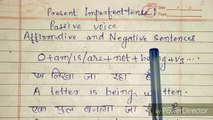 Present Imperfect tense
Passive voice
Affirmative and Negative Sentences
O+am/is/are+not+being+V3...
पत्र लिखा जा रहा है
A letter is being written.
एक पुल बनाया जा रहा